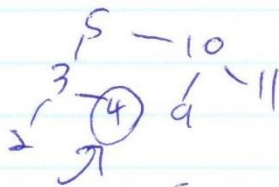 5 10
3 4 9 11
2